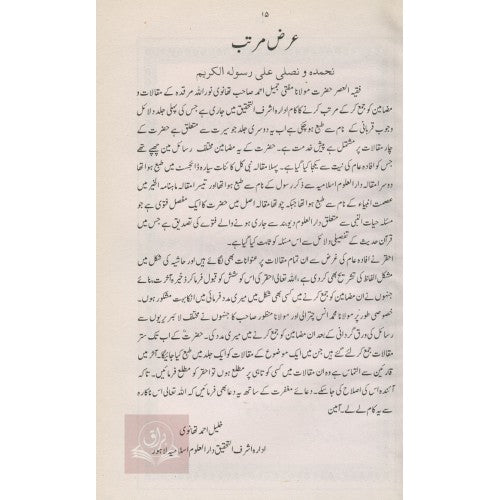 ۱۵
عرض مرتب
نحمدہ و نصلی علی رسولہ الکریم
فقیہ العصر حضرت مولانا مفتی جمیل احمد صاحب تھانوی نور اللہ مرقدہ کے مقالات و
مضامین کو جمع کر کے مرتب کرنے کا کام ادارہ اشرف التحقیق میں جاری ہے جس کی پہلی جلد دلائل
وجوب قربانی کے نام سے طبع ہو چکی ہے اب یہ دوسری جلد جو سیرت سے متعلق ہے حضرت کے
چار مقالات پر مشتمل ہے پیش خدمت ہے۔ حضرت کے یہ مضامین مختلف رسائل میں چھپے تھے
جس کو افادہ عام کی نیت سے یکجا کیا گیا ہے۔ پہلا مقالہ نبی کل کائنات سیارہ ڈائجسٹ میں طبع ہوا تھا
دوسرا مقالہ دارالعلوم اسلامیہ سے ذکر رسول کے نام سے طبع ہوا تھا اور تیسرا مقالہ ماہنامہ الخیر میں
عصمت انبیاء کے نام سے طبع ہوا تھا جبکہ چوتھا مقالہ اصل میں حضرت کا ایک مفصل فتوی ہے جو
مسئلہ حیات النبی سے متعلق دارالعلوم دیوبند سے جاری ہونے والے فتوے کی تصدیق ہے جس میں
قرآن حدیث کے تفصیلی دلائل سے اس مسئلہ کو ثابت کیا گیا ہے۔
احقر نے افادہ عام کی غرض سے ان تمام مقالات پر عنوانات بھی لگائے ہیں اور حاشیہ کی شکل میں
مشکل الفاظ کی تشریح بھی کر دی ہے، اللہ تعالی احقر کی اس کوشش کو قبول فرما کر ذخیرہ آخرت بنائے
جنہوں نے ان مضامین کو جمع کرنے میں کسی بھی شکل میں میری مدد فرمائی میں انکا بہت مشکور ہوں۔
خصوصی طور پر مولانا محمد انس چترالی اور مولانا منظور صاحب کا جنہوں نے مختلف لائبریریوں سے
رسائل کی ورق گردانی کے بعد ان مضامین کو جمع کرنے میں میری مدد کی۔ حضرتؒ کے اب تک ستر
مقالات جمع کرلئے گئے ہیں جن میں ایک موضوع کے مقالات کو ایک جلد میں طبع کیا جائیگا۔ آخر میں
قارئین سے التماس ہے وہ ان مقالات میں کسی کوتاہی پر مطلع ہوں تو احقر کو مطلع فرمائیں۔ تاکہ
آئندہ اس کی اصلاح کی جاسکے۔ دعائے مغفرت کے ساتھ یہ دعا بھی فرمائیں کہ اللہ تعالی اس ناکارہ
سے یہ کام لے لے۔ آمین
خلیل احمد تھانوی
ادارہ اشرف التحقیق دارالعلوم اسلامیہ لاہور